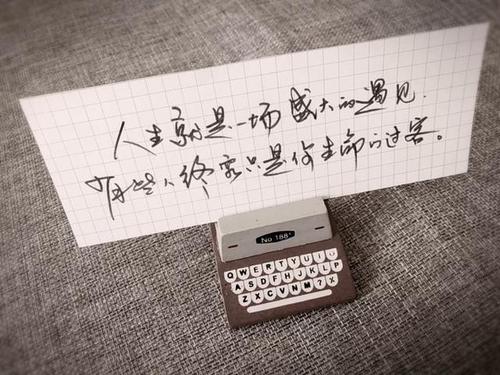 人生就是一场盛大的遇见.
有些人终究只是你生命的过客。
No 188*
QWERTYUIO
ASDFHJKLP
ZXCVNM?X